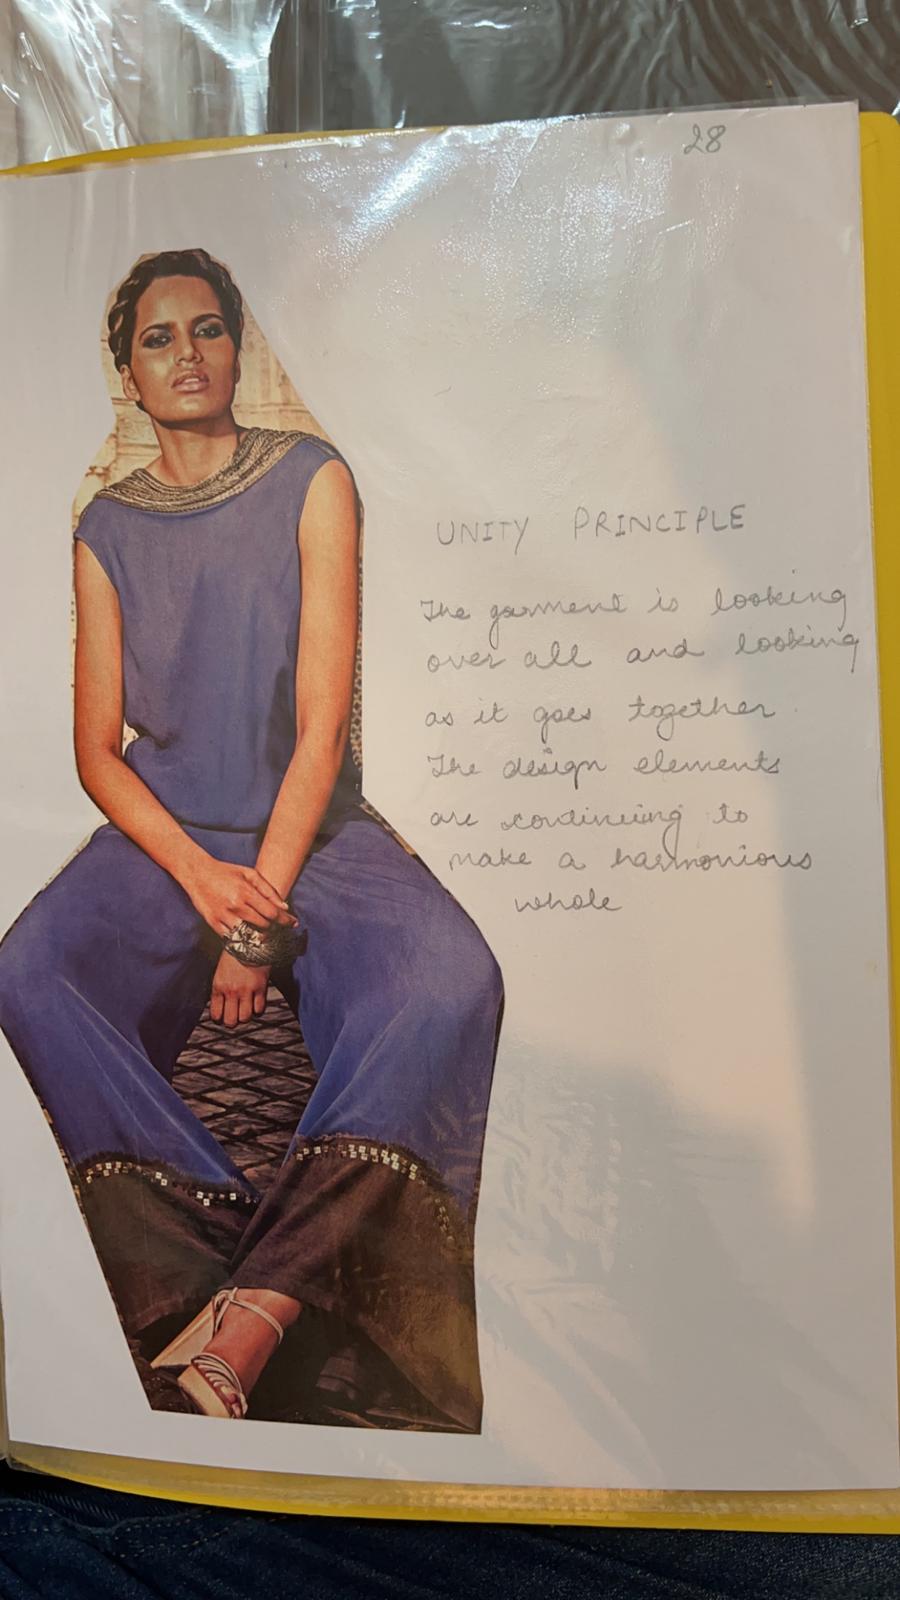 28
UNITY PRINCIPLE
The garment is looking
over all and looking
as it goes together
The design elements
are continuing to
make a harmonious
whole